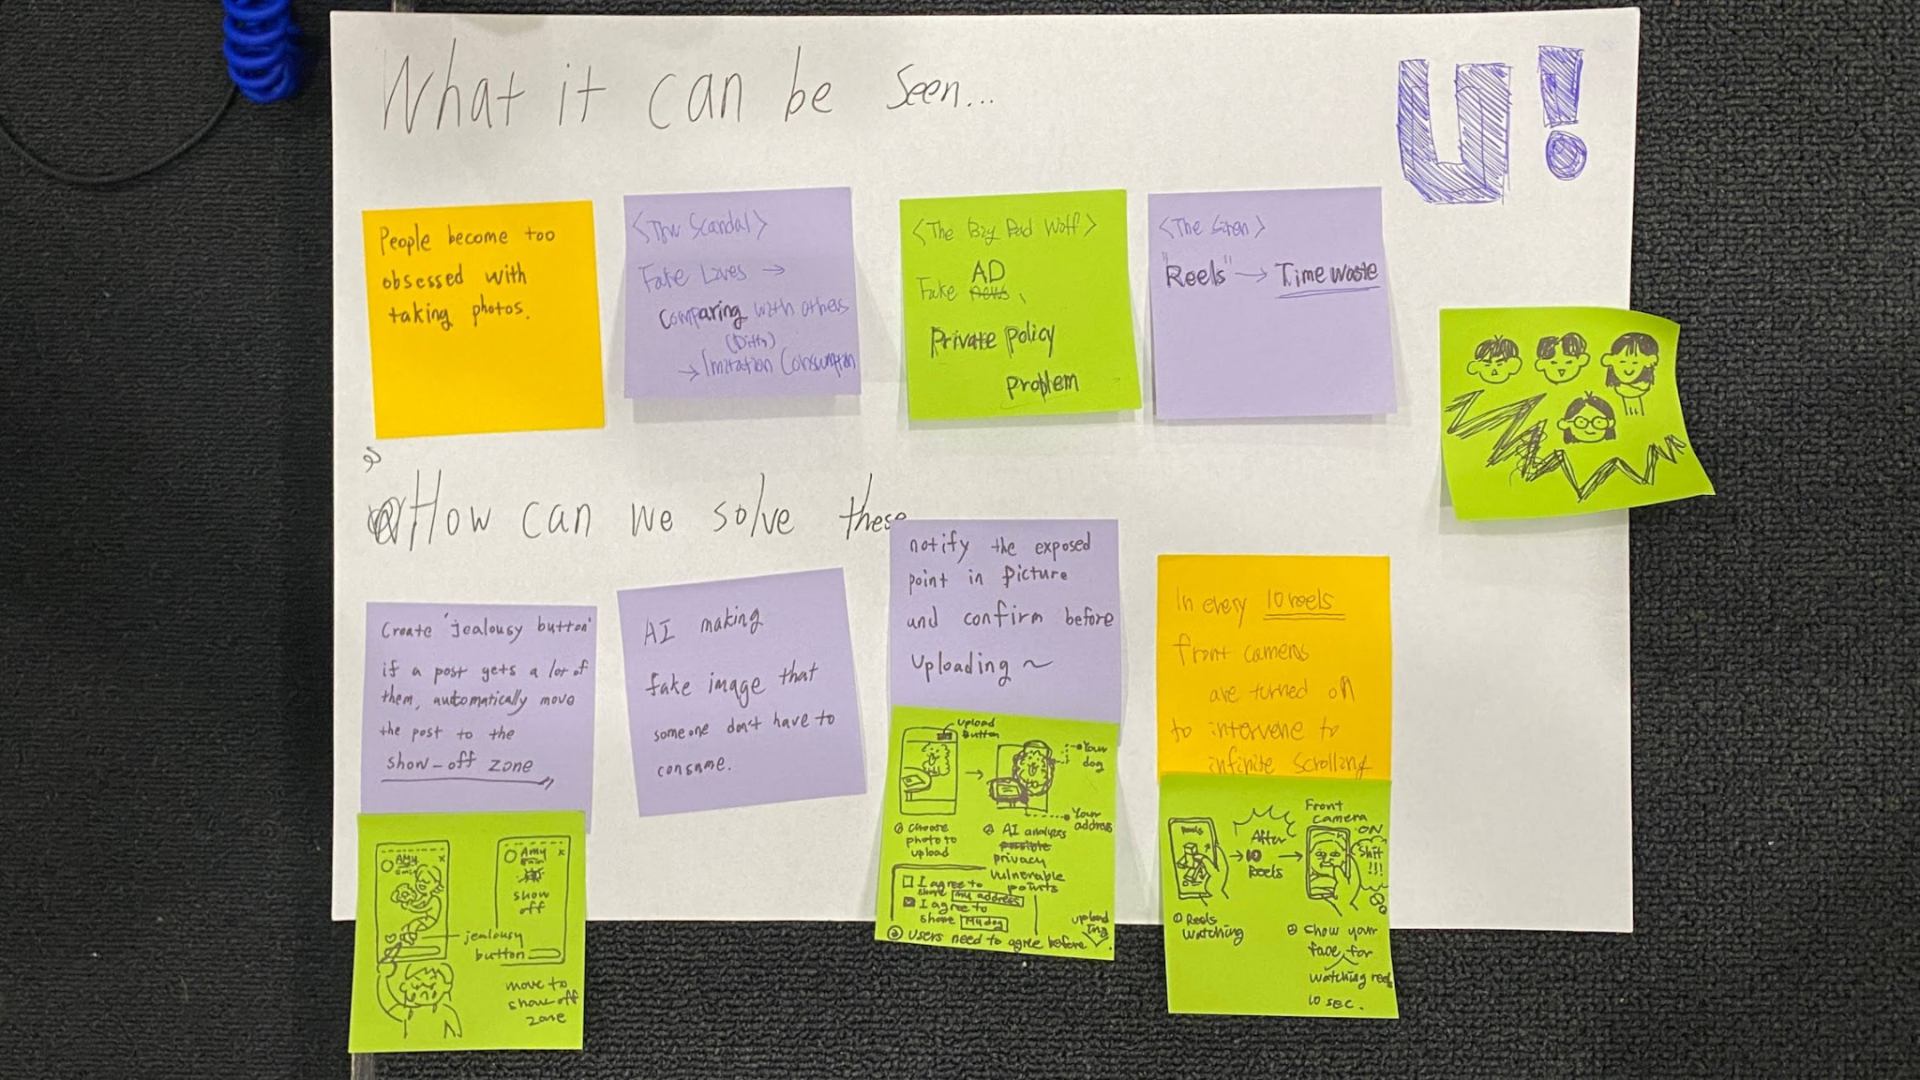 What it can be seen...
U!
People become too
obsessed with
taking photos.
< Scandal>
Fake Lives →
comparing with others
(Ditto)
→ Imitation Consumption
<The Big Bad Wolf>
Fake AD
Private policy
problem
<The Siren>
"Reels" → Time waste
How can we solve these
Create 'jealousy button'
if a post gets a lot of
them, automatically move
the post to the
show-off zone
AI making
fake image that
someone don't have to
consume.
notify the exposed
point in picture
and confirm before
uploading ~
In every 10 reels
front cameras
are turned on
to intervene to
infinite scrolling
AMY
Amy
show
off
jealousy
button
move to
show off
zone
upload
button
Your
dog
Your
address
① choose
photo to
upload
② AI analyzes
possible
privacy
vulnerable
points
I agree to
share my address
I agree to
share My dog
③ Users need to agree before
uploading.
Reels
After
10
Reels
Front
camera
ON
Shit
!!!
① Reels
watching
② Show your
face for
watching reels
10 sec.